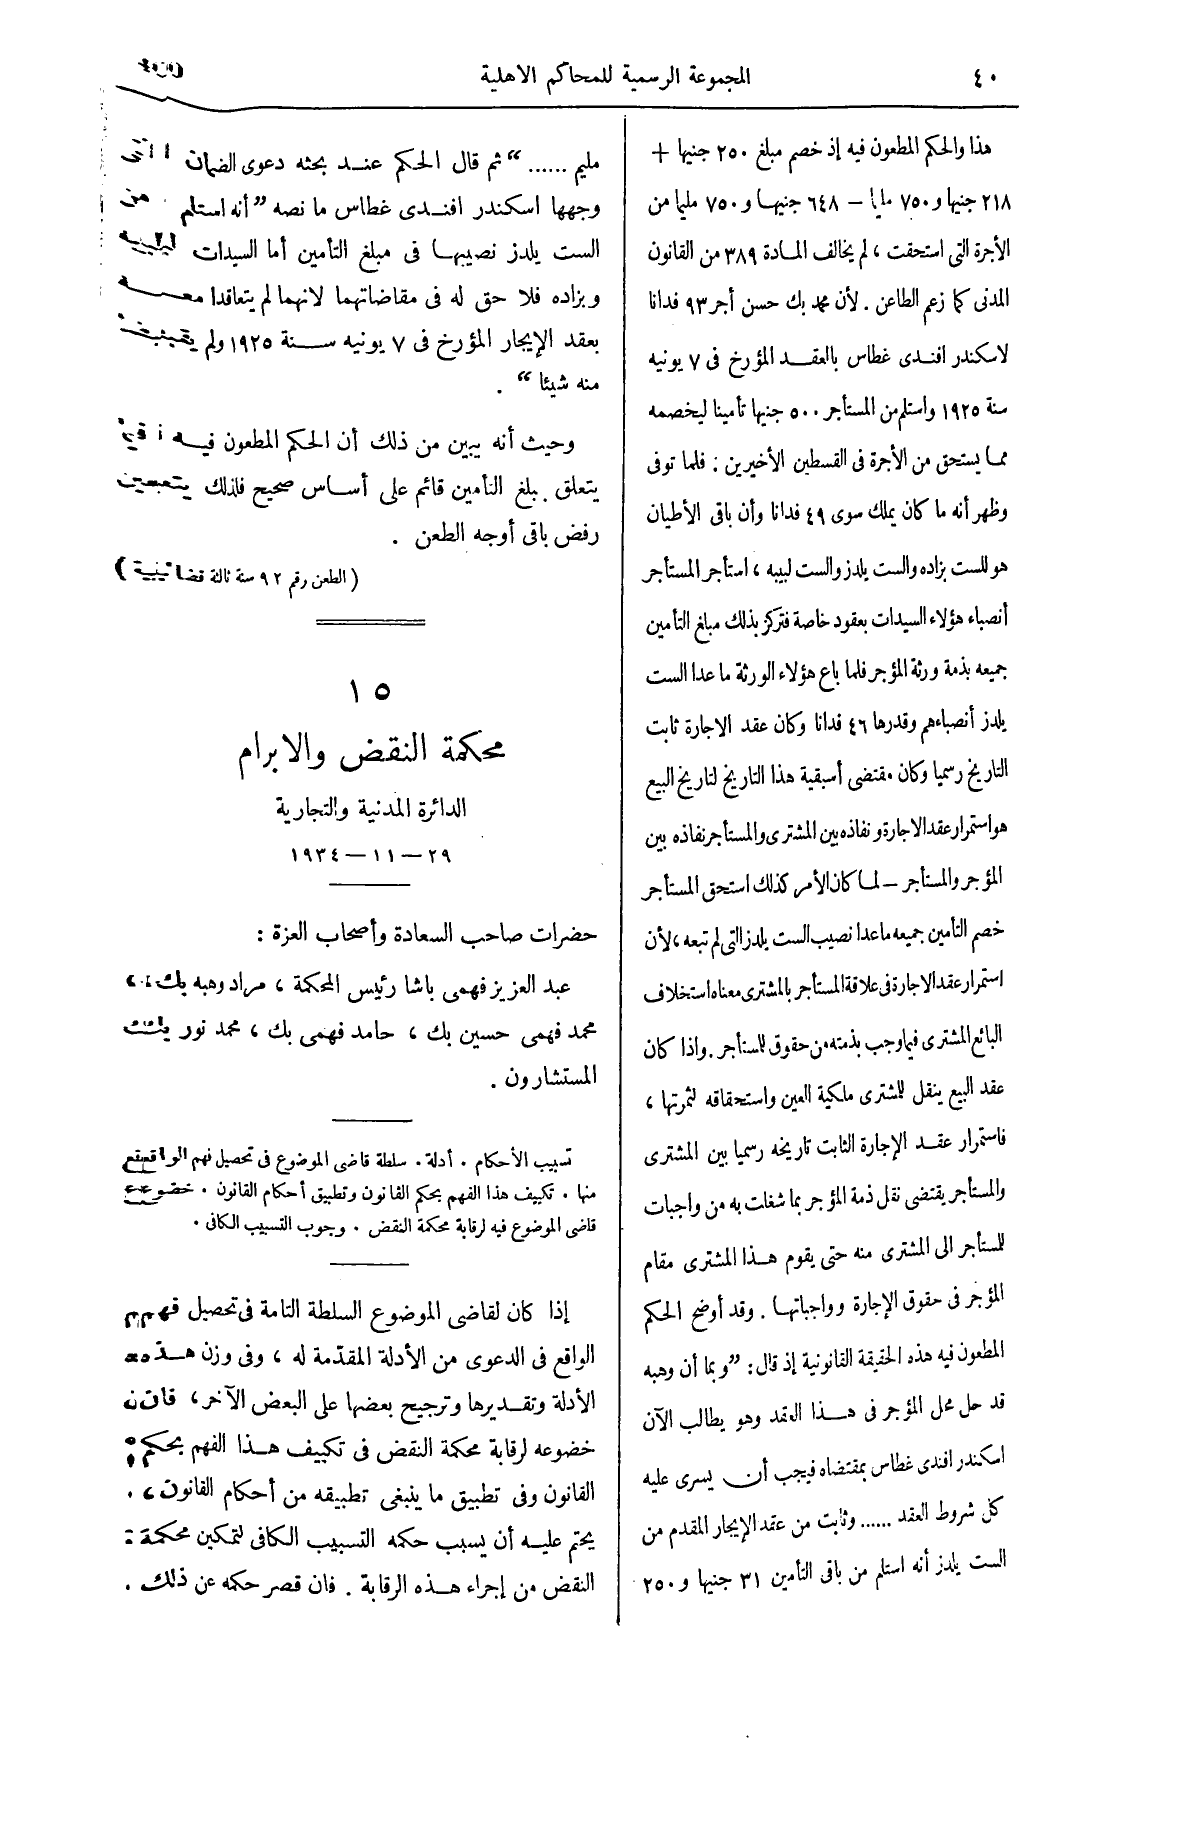 ٤٠
المجموعة الرسمية للمحاكم الاهلية
هذا والحكم المطعون فيه إذ خصم مبلغ ٢٥٠ جنيها +
٢١٨ جنيها و ٧٥٠ مليما – ٦٤٨ جنيها و ٧٥٠ مليما من
الأجرة التى استحقت ، لم يخالف المادة ٣٨٩ من القانون
المدنى كما زعم الطاعن . لأن محمد بك حسن أجر ٩٣ فدانا
لاسكندر افندى غطاس بالعقد المؤرخ فى ٧ يونيه
سنة ١٩٢٥ واستلم من المستأجر ٥٠٠ جنيها تأمينا ليخصمه
مما يستحق من الأجرة فى القسطين الأخيرين : فلما توفى
وظهر أنه ما كان يملك سوى ٤٩ فدانا وأن باقى الأطيان
هو للست بزاده والست يلدز والست لبيبه ، استأجر المستأجر
أنصباء هؤلاء السيدات بعقود خاصة فتركز بذلك مبلغ التأمين
جميعه بذمة ورثة المؤجر فلما باع هؤلاء الورثة ما عدا الست
يلدز أنصباءهم وقدرها ٤٦ فدانا وكان عقد الاجارة ثابت
التاريخ رسميا وكان مقتضى أسبقية هذا التاريخ لتاريخ البيع
هو استمرار عقد الاجارة ونفاذه بين المشترى والمستأجر نفاذه بين
المؤجر والمستأجر – لما كان الأمر كذلك استحق المستأجر
خصم التأمين جميعه ماعدا نصيب الست يلدز التى لم تبعه ، لأن
استمرار عقد الاجارة فى علاقة المستأجر بالمشترى معناه استخلاف
البائع المشترى فيما وجب بذمته من حقوق للمستأجر . واذا كان
عقد البيع ينقل للمشترى ملكية العين واستحقاقه لثمرتها ،
فاستمرار عقد الإجارة الثابت تاريخه رسميا بين المشترى
والمستأجر يقتضى نقل ذمة المؤجر بما شغلت به من واجبات
للمستأجر الى المشترى منه حتى يقوم هذا المشترى مقام
المؤجر فى حقوق الإجارة وواجباتها . وقد أوضح الحكم
المطعون فيه هذه الحقيقة القانونية إذ قال : ”وبما أن وهبه
قد حل محل المؤجر فى هذا العقد وهو يطالب الآن
اسكندر افندى غطاس بمقتضاه فيجب أن يسرى عليه
كل شروط العقد ...... وثابت من عقد الإيجار المقدم من
الست يلدز أنه استلم من باقى التأمين ٣١ جنيها و ٢٥٠
مليم ......“ ثم قال الحكم عند بحثه دعوى الضمان التى
وجهها اسكندر افندى غطاس ما نصه ”أنه استلم من
الست يلدز نصيبها فى مبلغ التأمين أما السيدات لبيبة
وبزاده فلا حق له فى مقاضاتهما لانهما لم يتعاقدا معه
بعقد الإيجار المؤرخ فى ٧ يونيه سنة ١٩٢٥ ولم يقبضا
منه شيئا“ .
وحيث أنه يبين من ذلك أن الحكم المطعون فيه فيما
يتعلق بمبلغ التأمين قائم على أساس صحيح فلذلك يتعين
رفض باقى أوجه الطعن .
( الطعن رقم ٩٢ سنة ثالثة قضائية )
١٥
محكمة النقض والابرام
الدائرة المدنية والتجارية
٢٩ – ١١ – ١٩٣٤
حضرات صاحب السعادة وأصحاب العزة :
عبد العزيز فهمى باشا رئيس المحكمة ، مراد وهبه بك ،
محمد فهمى حسين بك ، حامد فهمى بك ، محمد نور بك
المستشارون .
تسبيب الأحكام . أدلة . سلطة قاضى الموضوع فى تحصيل فهم الواقع
منها . تكييف هذا الفهم بحكم القانون وتطبيق أحكام القانون . خضوع
قاضى الموضوع فيه لرقابة محكمة النقض . وجوب التسبيب الكافى .
إذا كان لقاضى الموضوع السلطة التامة فى تحصيل فهم
الواقع فى الدعوى من الأدلة المقدّمة له ، وفى وزن هذه
الأدلة وتقديرها وترجيح بعضها على البعض الآخر ، فان
خضوعه لرقابة محكمة النقض فى تكييف هذا الفهم بحكم
القانون وفى تطبيق ما ينبغى تطبيقه من أحكام القانون ،
يحتم عليه أن يسبب حكمه التسبيب الكافى لتمكين محكمة
النقض من إجراء هذه الرقابة . فان قصر حكمه عن ذلك .